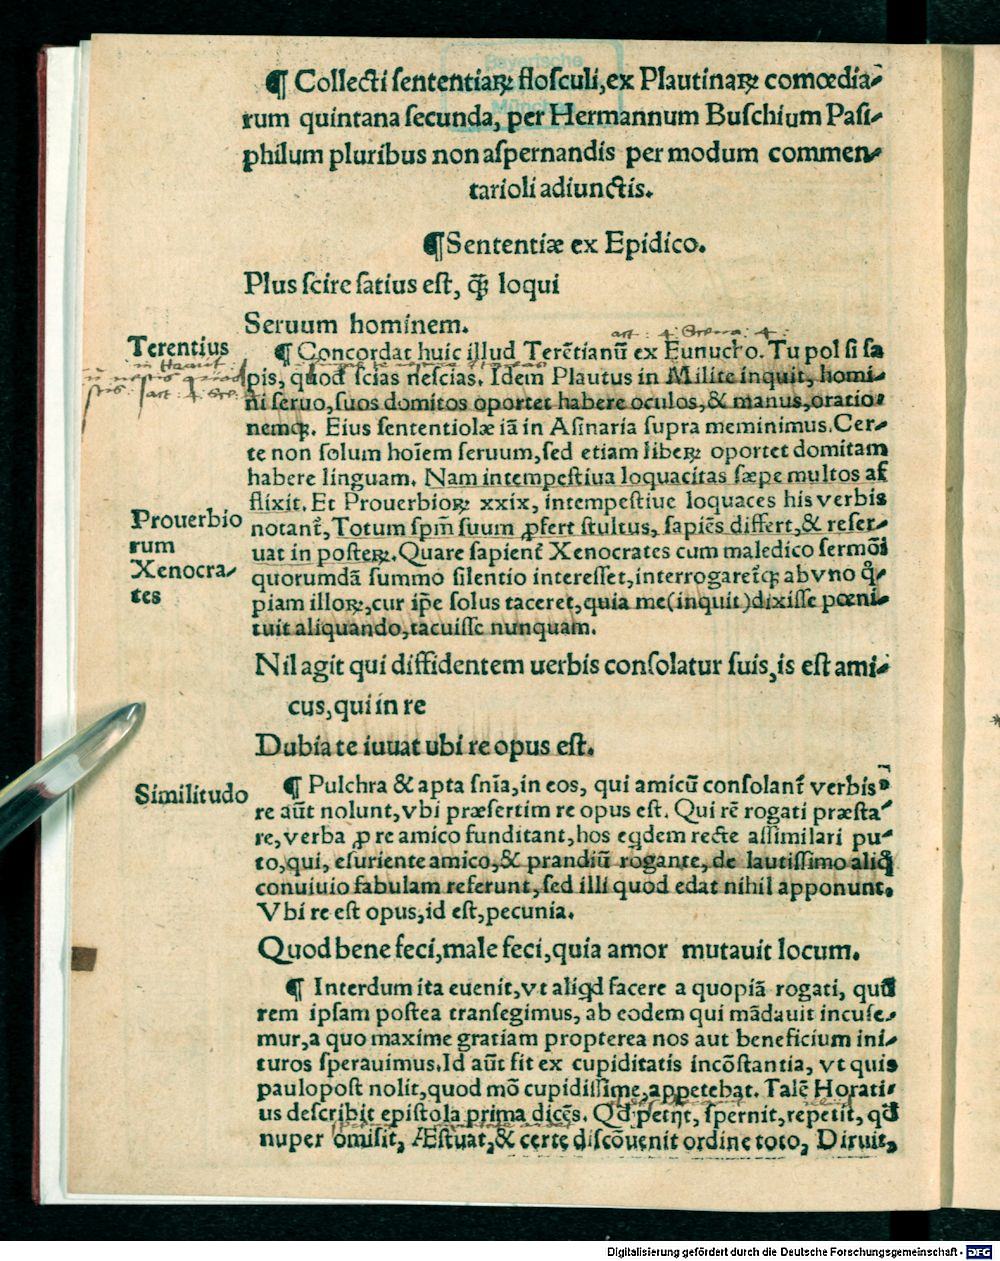 ¶ Collecti sententiaꝝ flosculi, ex Plautinaꝝ comœdia-
rum quintana secunda, per Hermannum Buschium Pasi-
philum pluribus non aspernandis per modum commen-
tarioli adiunctis.
¶ Sententiæ ex Epidico.
Plus scire satius est, q̃ȝ loqui
Seruum hominem.
Terentius
¶ Concordat huic illud Terẽtianũ ex Eunucho. Tu pol si sa
pis, quod scias nescias. Idem Plautus in Milite inquit, homi-
ni seruo, suos domitos oportet habere oculos, & manus, oratio
nemqȝ. Eius sententiolæ iã in Asinaria supra meminimus. Cer-
te non solum hoĩem seruum, sed etiam liberꝝ oportet domitam
habere linguam. Nam intempestiua loquacitas sæpe multos af
flixit. Et Prouerbioꝝ xxix, intempestiue loquaces his verbis
Prouerbio
rum
notant᷑, Totum spm̃ suum ꝓfert stultus, sapiẽs differt, & reser-
uat in posteꝝ. Quare sapient᷑ Xenocrates cum maledico sermõi
Xenocra-
tes
quorumdã summo silentio interesset, interrogaret᷑qȝ ab vno q̊-
piam illoꝝ, cur ip̃e solus taceret, quia me (inquit) dixisse pœni-
tuit aliquando, tacuisse nunquam.
Nil agit qui diffidentem uerbis consolatur suis, is est ami-
cus, qui in re
Dubia te iuuat ubi re opus est.
Similitudo
¶ Pulchra & apta sñia, in eos, qui amicũ consolant᷑ verbis,
re aũt nolunt, vbi præsertim re opus est. Qui rẽ rogati præsta-
re, verba ꝓ re amico funditant, hos eqdem recte assimilari pu-
to, qui, esuriente amico, & prandiũ rogante, de lautissimo aliq̃
conuiuio fabulam referunt, sed illi quod edat nihil apponunt.
Vbi re est opus, id est, pecunia.
Quod bene feci, male feci, quia amor mutauit locum.
¶ Interdum ita euenit, vt aliqd facere a quopiã rogati, quũ
rem ipsam postea transegimus, ab eodem qui mãdauit incuse-
mur, a quo maxime gratiam propterea nos aut beneficium ini-
turos sperauimus. Id aũt fit ex cupiditatis incõstantia, vt quis
paulopost nolit, quod mõ cupidissime, appetebat. Talẽ Horati-
us describit epistola prima dicẽs. Qđ petijt, spernit, repetit, qđ
nuper omisit, Æstuat, & certe discõuenit ordine toto, Diruit,
Digitalisierung gefördert durch die Deutsche Forschungsgemeinschaft - DFG